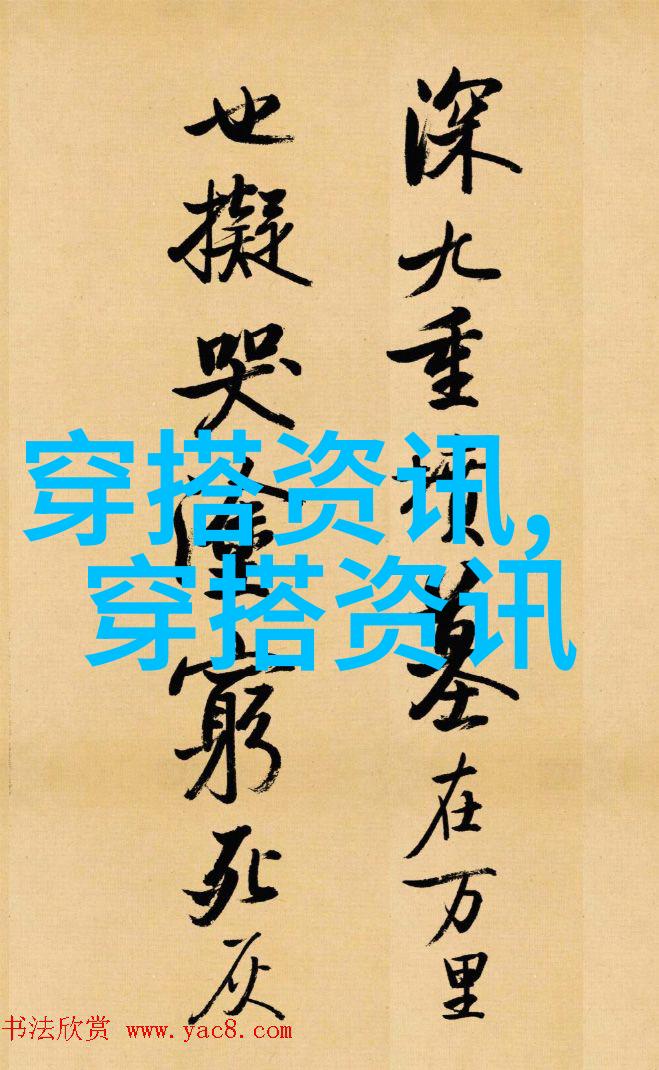 深九重墳墓在万里
也擬哭塗窮死灰
穿搭资讯,
穿搭资讯
书法欣赏 www.yac8.com